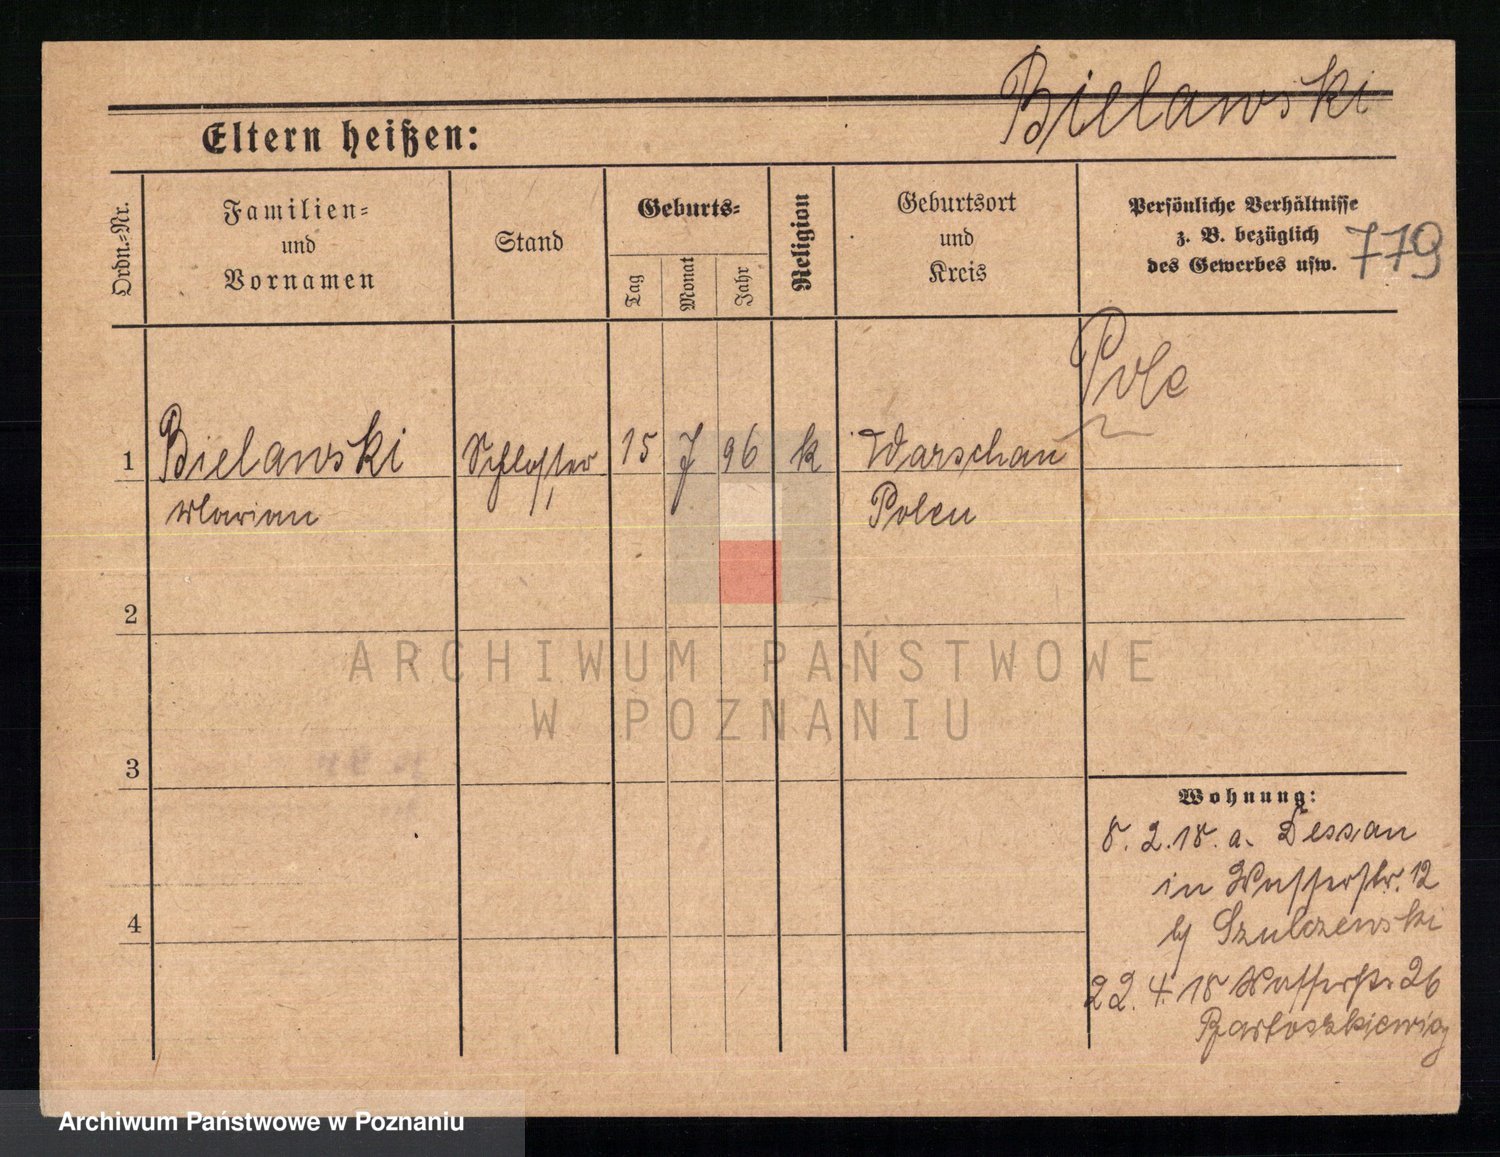 Bielawski
Eltern heißen:
Ordn.=Nr.
Familien=
und
Vornamen
Stand
Geburts=
Tag
Monat
Jahr
Religion
Geburtsort
und
Kreis
Persönliche Verhältnisse
z. B. bezüglich
des Gewerbes usw.
779
Pole
1 Bielawski Schlosser 15 7 96 k Warschau
Marian Polen
2
3
4
Wohnung:
8. 2. 18. a. Dessau
in Wasserstr. 12
bj Szulczewski
22. 4. 18 Wasserstr. 26
Bartoszkiewicz
ARCHIWUM PAŃSTWOWE
W POZNANIU
Archiwum Państwowe w Poznaniu